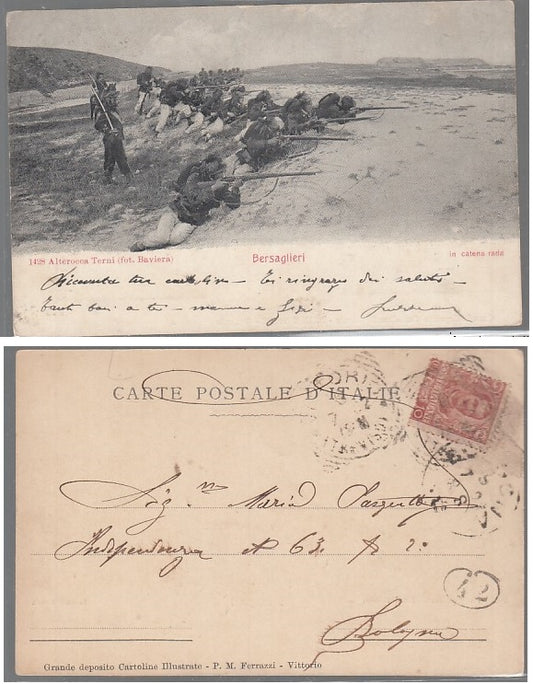 1428 Alterocca Terni (fot. Baviera)
Bersaglieri
in catena rada
Ricevuta tua cartolina - Ti ringrazio dei saluti
Tanti baci a te - mamma e
CARTE POSTALE D'ITALIE
Sig.na Maria
Indipendenza N 63.
Bologna
42
Grande deposito Cartoline Illustrate - P. M. Ferrazzi - Vittorio